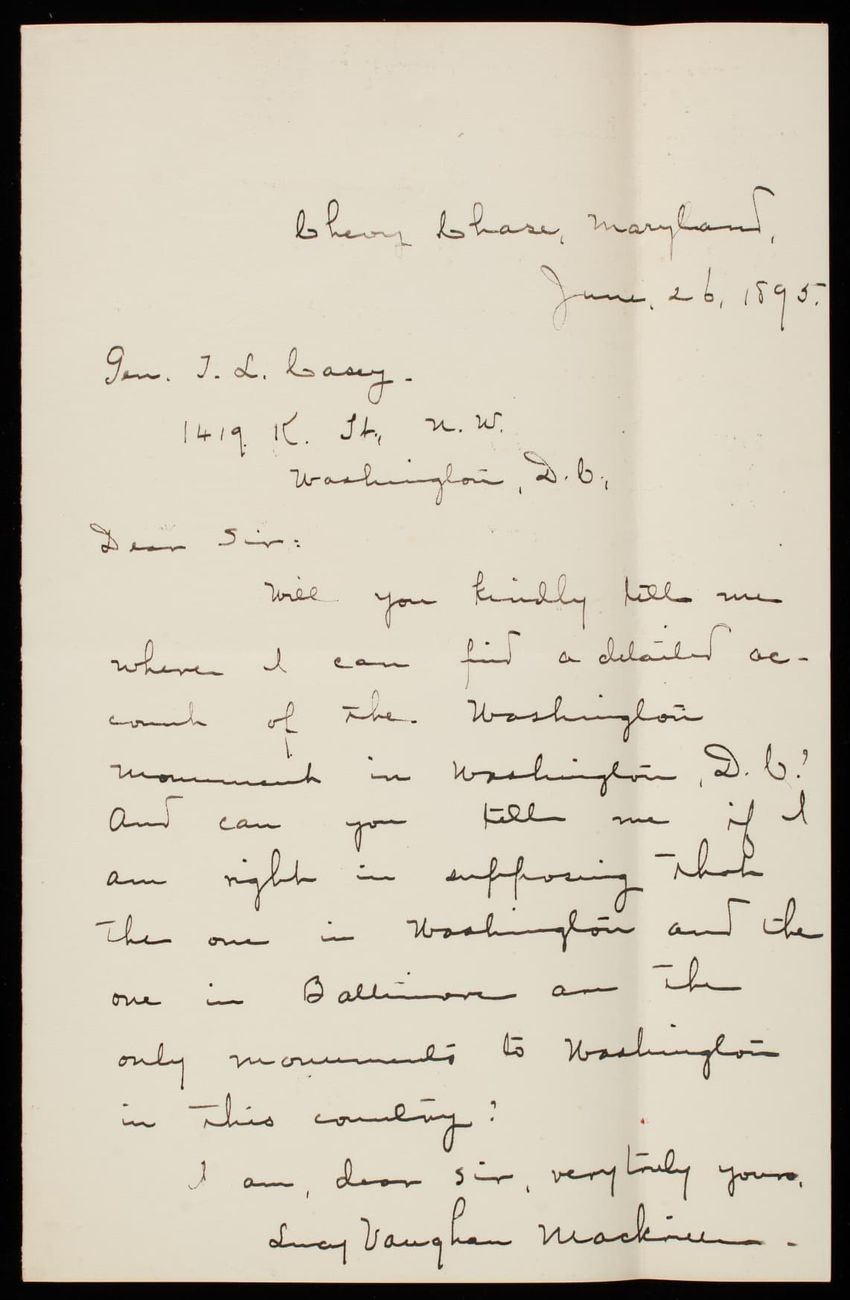 Chevy Chase, Maryland,
June, 26, 1895.
Gen. T. L. Casey.
1419 K. St., N. W.
Washington, D. C.,
Dear Sir:
Will you kindly tell me
where I can find a detailed ac-
count of the Washington
Monument in Washington, D. C.?
And can you tell me if I
am right in supposing that
the one in Washington and the
one in Baltimore are the
only monuments to Washington
in this country?
I am, dear sir, very truly yours,
Lucy Vaughan